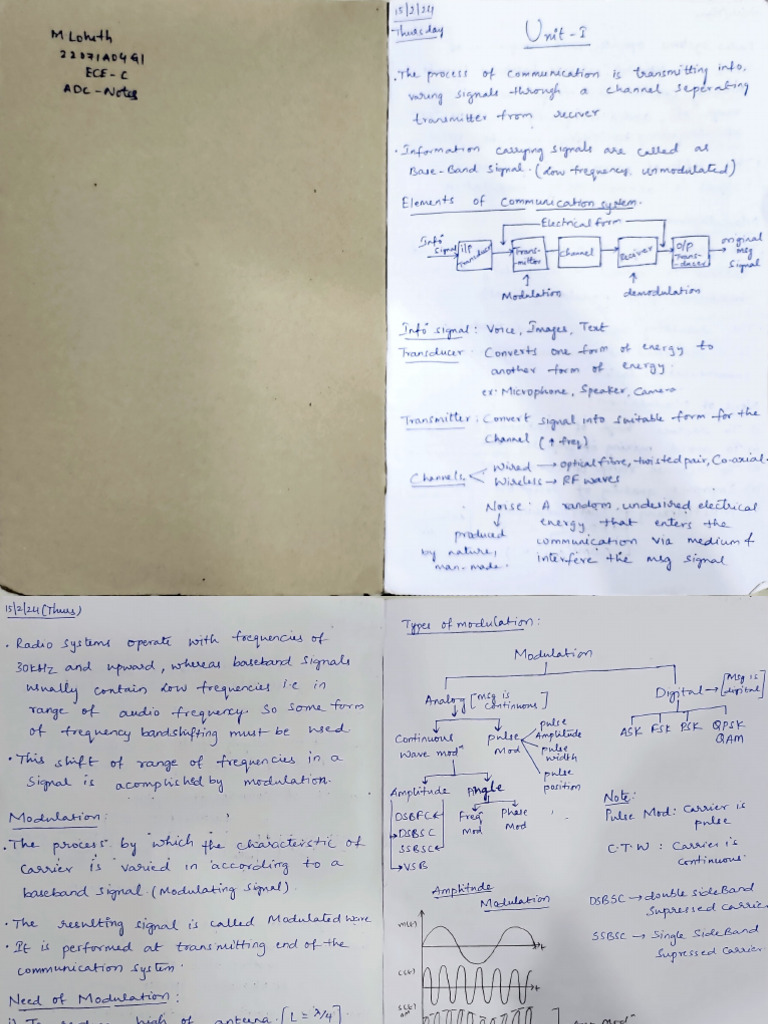 M Lohith
22071A04G1
ECE - C
ADC - Notes
15/2/24
Thursday
Unit - I
. The process of communication is transmitting info.
varing signals through a channel seperating
transmitter from reciver
. Information carrying signals are called as
Base-Band Signal. (low frequency, unmodulated)
Elements of Communication system.
Electrical form
Info signal
i/p Transducer
Trans-mitter
Channel
Reciver
O/P Trans-ducer
original msg signal
Modulation
demodulation
Info signal : Voice, Images, Text
Transducer : Converts one form of energy to
another form of energy.
ex: Microphone, Speaker, Camera
Transmitter : Convert signal into suitable form for the
channel (↑ freq)
Channels
Wired → optical fibre, twisted pair, Co-axial.
Wireless → RF waves
Noise : A random, undesired electrical
energy that enters the
communication via medium &
interfere the msg signal
produced
by nature,
man-made.
15/2/24 (Thurs)
. Radio systems operate with frequencies of
30kHz and upward, whereas baseband signals
usually contain low frequencies i.e in
range of audio frequency. So some form
of frequency bandshifting must be used
. This shift of range of frequencies in a
signal is acomplished by modulation.
Modulation:
. The process by which the characteristic of
carrier is varied in according to a
baseband signal. (Modulating signal)
. The resulting signal is called Modulated wave
. It is performed at transmitting end of the
communication system.
Need of Modulation :
i) To reduce high of antena. [L = λ/4]
Types of modulation:
Modulation
Analog [msg is continuous]
Digital → [Msg is digital]
Continuous wave modⁿ
Pulse Mod
pulse Amplitude
pulse width
pulse position
ASK FSK PSK QPSK
QAM
Amplitude
Angle
DSBFC
DSBSC
SSBSC
VSB
Freq Mod
Phase Mod
Note:
Pulse Mod: Carrier is
pulse
C.T.W : Carrier is
continuous.
DSBSC → double sideBand
Supressed Carrier
SSBSC → Single SideBand
Supressed Carrier
Amplitude
Modulation
m(t)
t
c(t)
t
s(t)